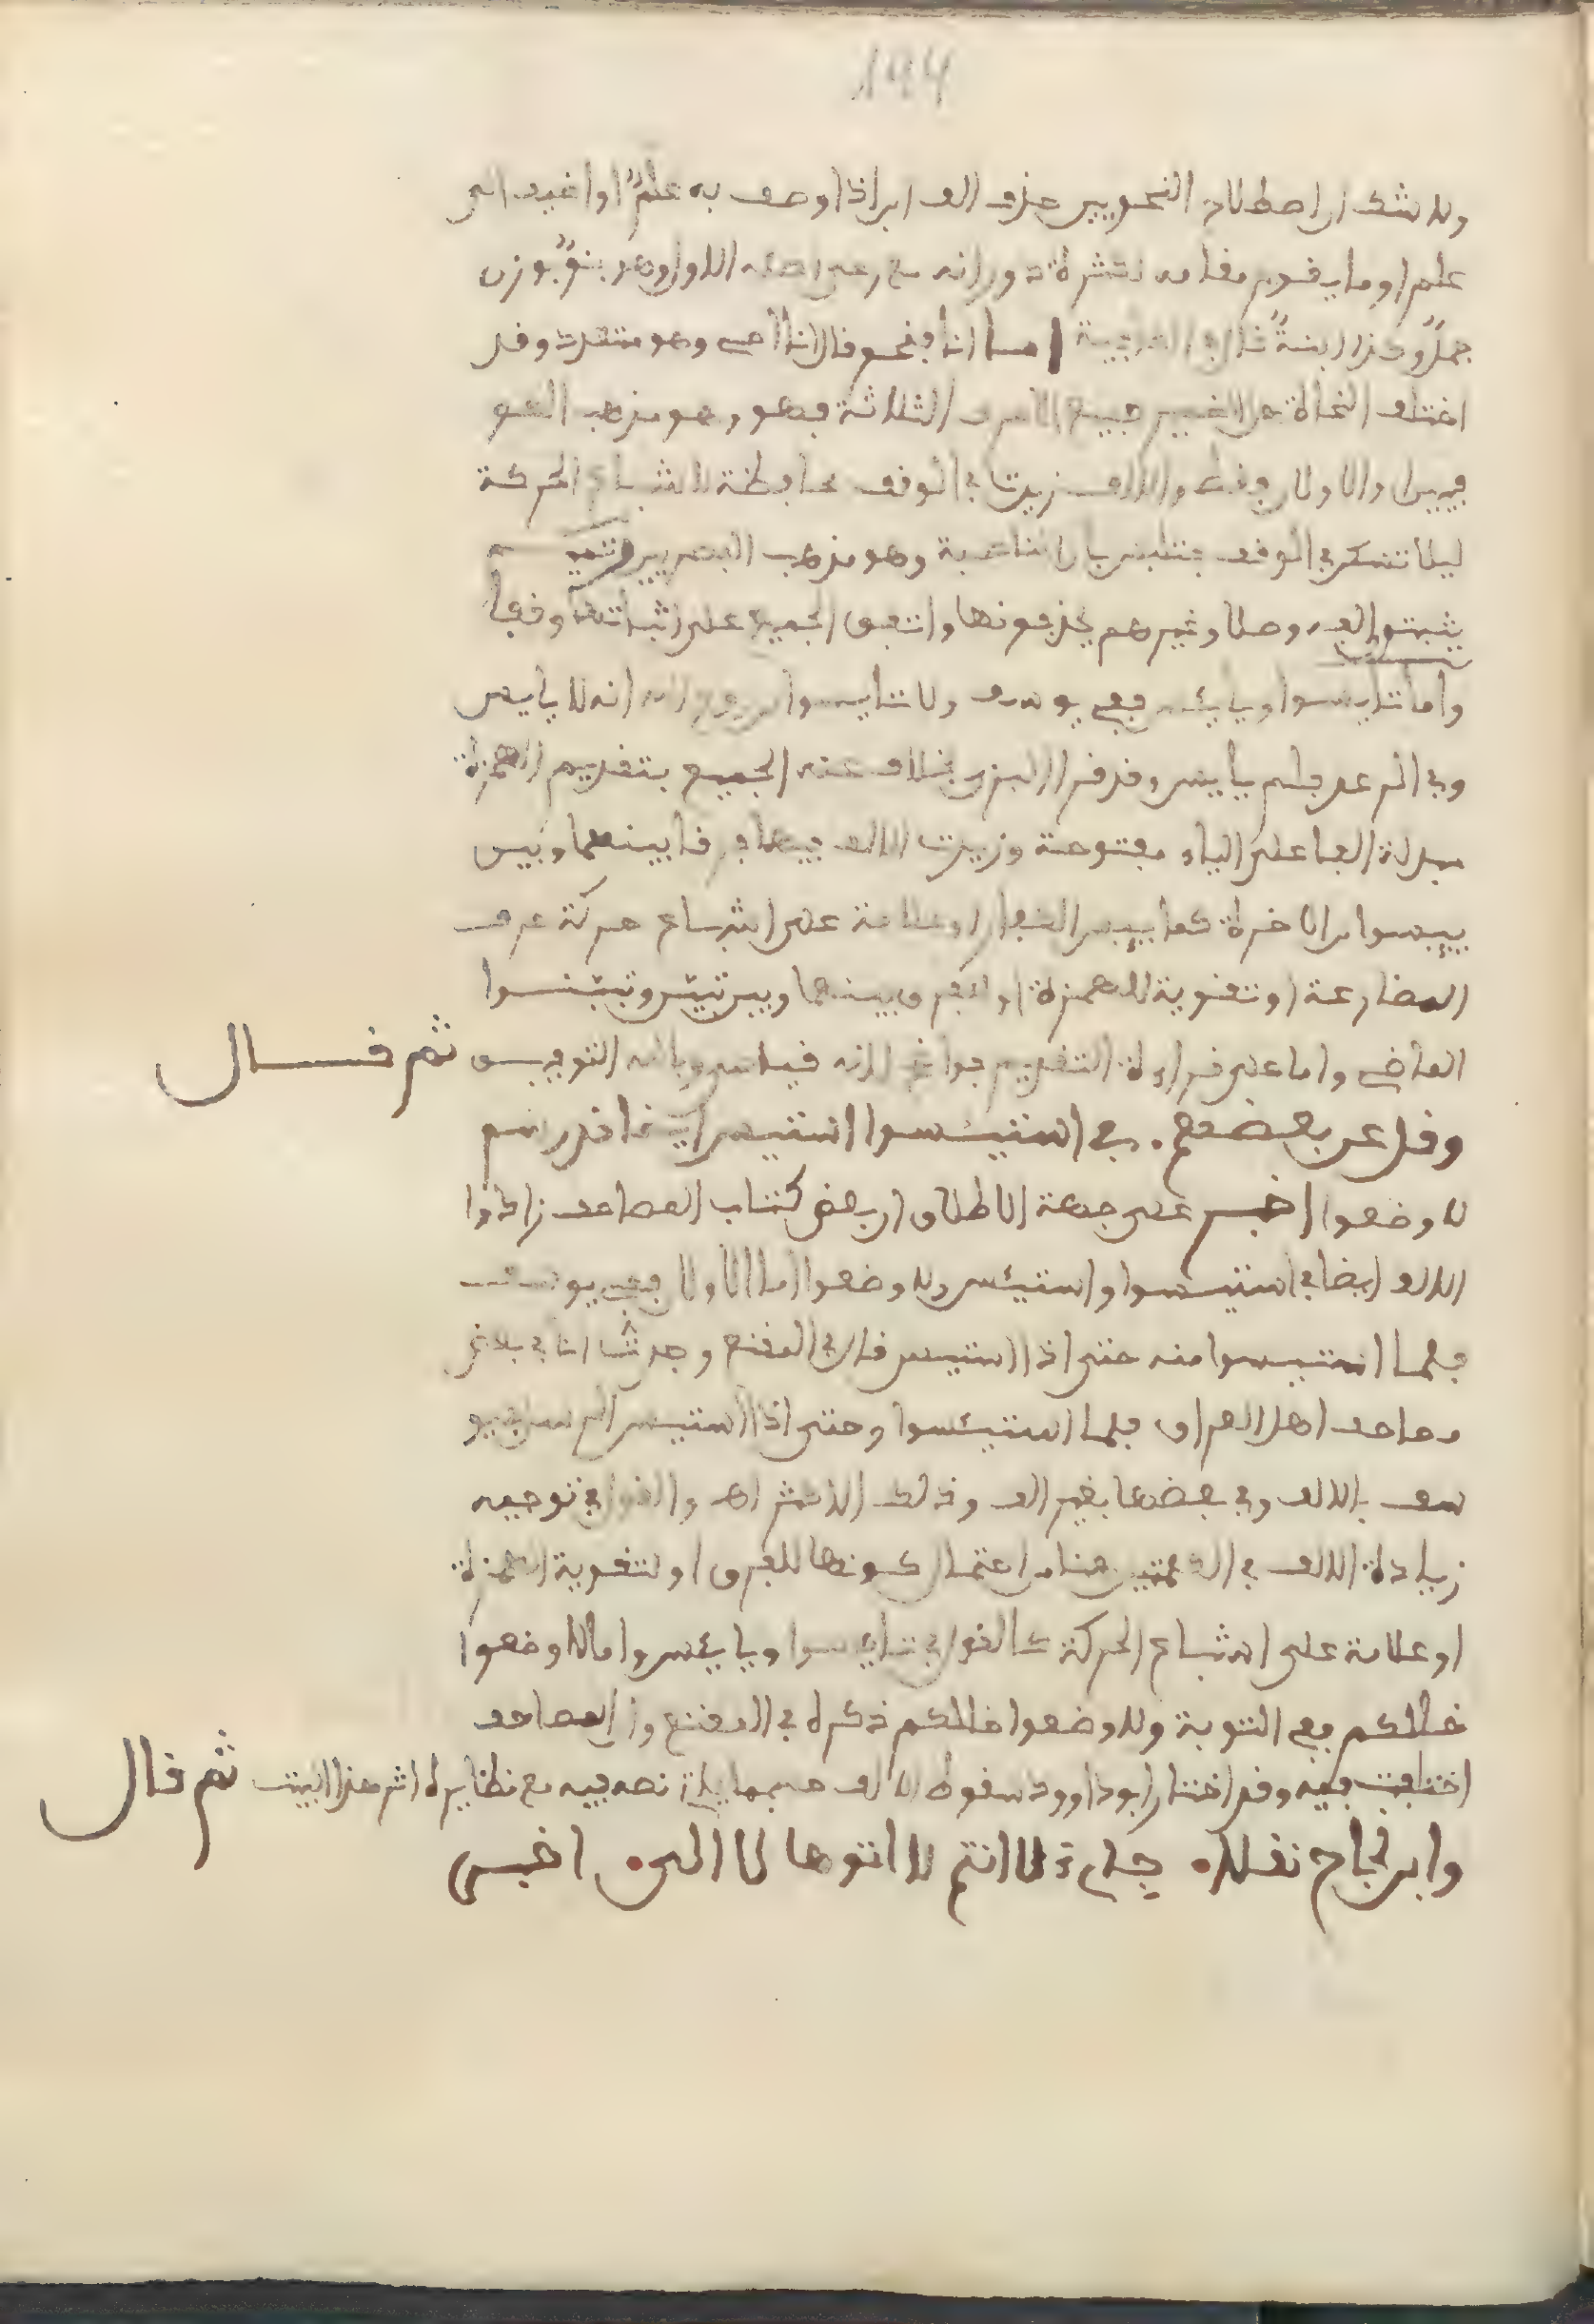 194
ولا شك ان اصطلاح النحويين حذف الف ابن اذا وصف به علم او اضيف الى
علم او ما يقوم مقامه لكثرة دورانه مع رعي اصله الاول وهو بنو بوزن
جمل وحذ ابنة في العربية اما انا فنحو قال انا احي وهو متعدد وقد
اختلف النحاة هل الضمير جميع الاحرف الثلاثة فهو وهو مذهب الكو
فيين او الاولان فقط والالف زيدت في الوقف محافظة لاشباع الحركة
ليلا تسكن في الوقف فتلتبس بان الناصبة وهو مذهب البصريين وتميم
يثبتون الفه وصلا وغيرهم يحذفونها واتفق الجميع على اثباتها وقفا
واما تايسوا ويايس ففي يوسف ولا تايسوا من روح الله انه لا يايس
وفي الرعد افلم يايس وقد قرا البزي بخلاف عنه الجميع بتقديم الهمزة
مبدلة الفا على الياء مفتوحة وزيدت الالف فيها فرقا بينهما وبين
ييسوا من الاخرة كما ييس الكفار او علامة على اشباع حركة حرف
المضارعة او تقوية للهمزة او لفرق بينها وبين تبيّن وتبيّنوا
الماضي واما على قراءة التقديم فواضح لانه قياس وبالله التوفيق ثم قال
وقل عن بعضهم. في استيئسوا استيئس ايضا قد رسم
لا وضعوا اخبر على جهة الاطلاق ان بعض كتاب المصاحف زادوا
الالف ايضا في استيئسوا واستيئس ولا وضعوا اما الاولان ففي يوسف
فلما استيئسوا منه حتى اذا استيئس قال في المقنع وجدت انا في بعض
مصاحف اهل العراق فلما استيئسوا وحتى اذا استيئس الرسل في يو
سف بالالف وفي بعضها بغير الف وذلك الاكثر اهـ والقول في توجيه
زيادة الالف في الكلمتين هنا من احتمال كونها للفرق او لتقوية الهمزة
او علامة على اشباع الحركة كالقول في تايسوا ويايس واما لا اوضعوا
خلالكم ففي التوبة ولا وضعوا خلالكم ذكره في المقنع وان المصاحف
اختلفت فيه وقد اختار ابو داوود سقوط الالف حسبما ياتي نصه فيه مع نظايره اثر هذا البيت ثم قال
وابن نجاح نقلا. جاء لا انتم لا اتوها لا الى. اخبر